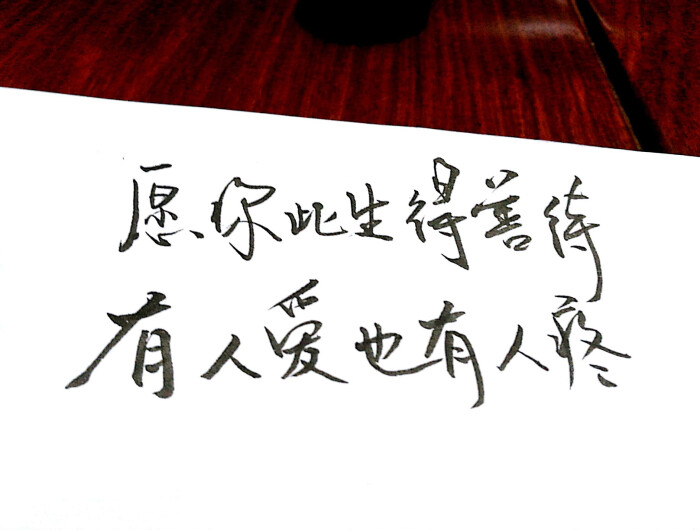 愿你此生得善待
有人爱也有人疼